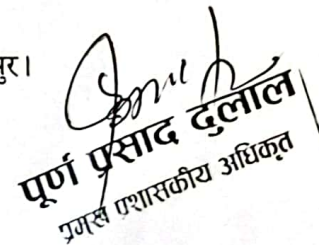 पुर।
पूर्ण प्रसाद दुलाल
प्रमुख प्रशासकीय अधिकृत